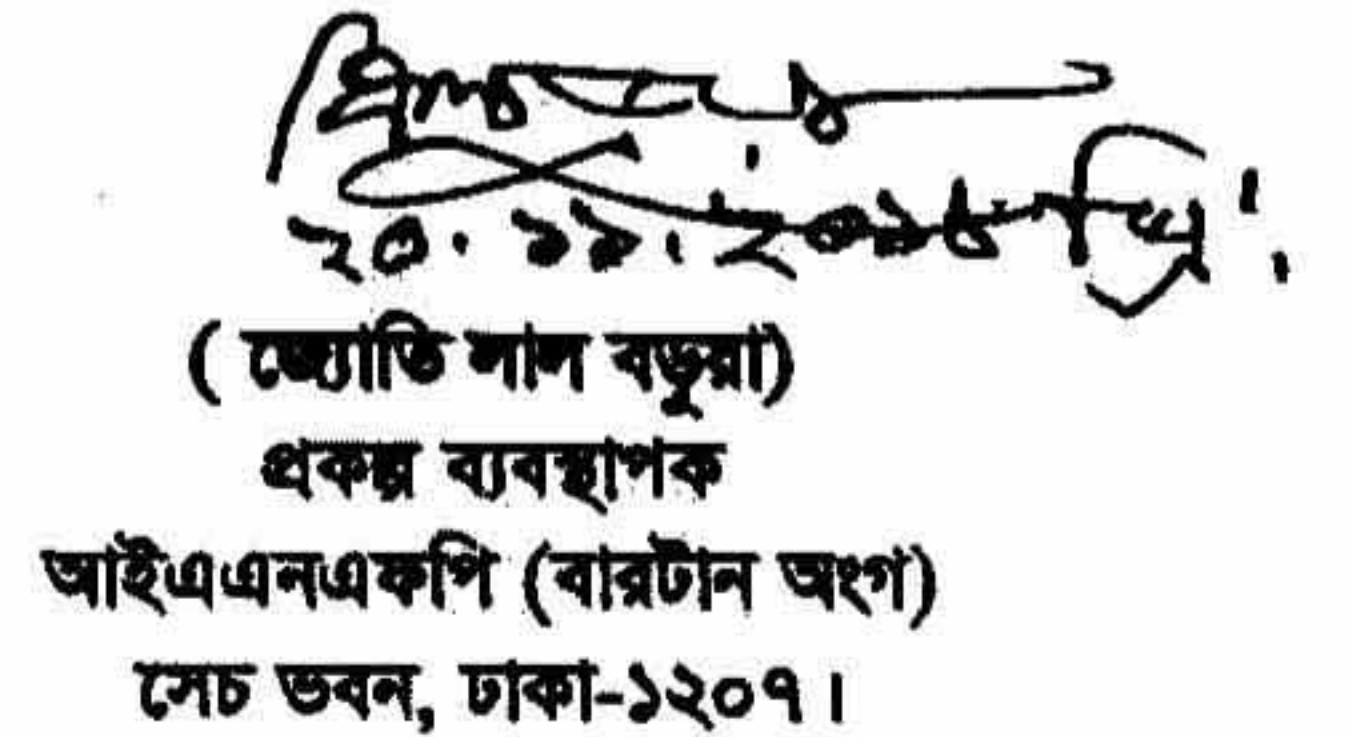 ২০.১১.২০১৪ খ্রি:.
( জ্যোতি লাল বড়ুয়া)
প্রকল্প ব্যবস্থাপক
আইএএনএফপি (বারটান অংগ)
সেচ ভবন, ঢাকা-১২০৭।